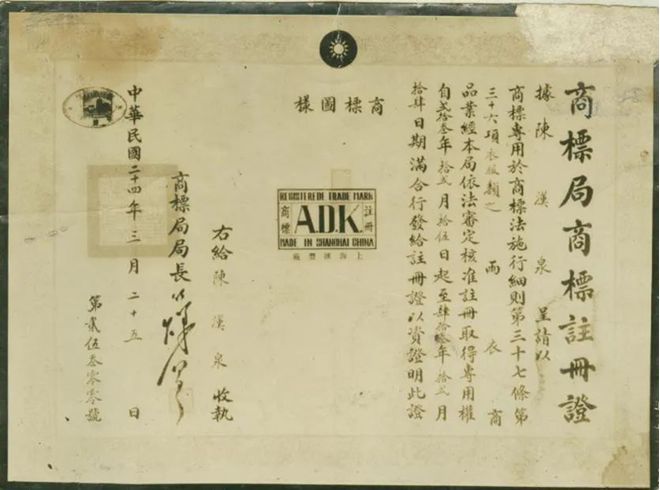 商標局商標註冊證
據陳漢泉呈請以
商標專用於商標法施行細則第三十七條第
三十六項衣服類之雨衣商
品業經本局依法審定核准註冊取得專用權
自貳拾叁年拾貳月拾伍日起至肆拾叁年拾貳月
拾肆日期滿合行發給註冊證以資證明此證
商標圖樣
REGISTERED TRADE MARK
商標
A.D.K.
註冊
MADE IN SHANGHAI CHINA
上海匯豐廠
右給陳漢泉收執
商標局局長
中華民國二十四年三月二十五日
第貳伍叁零零號